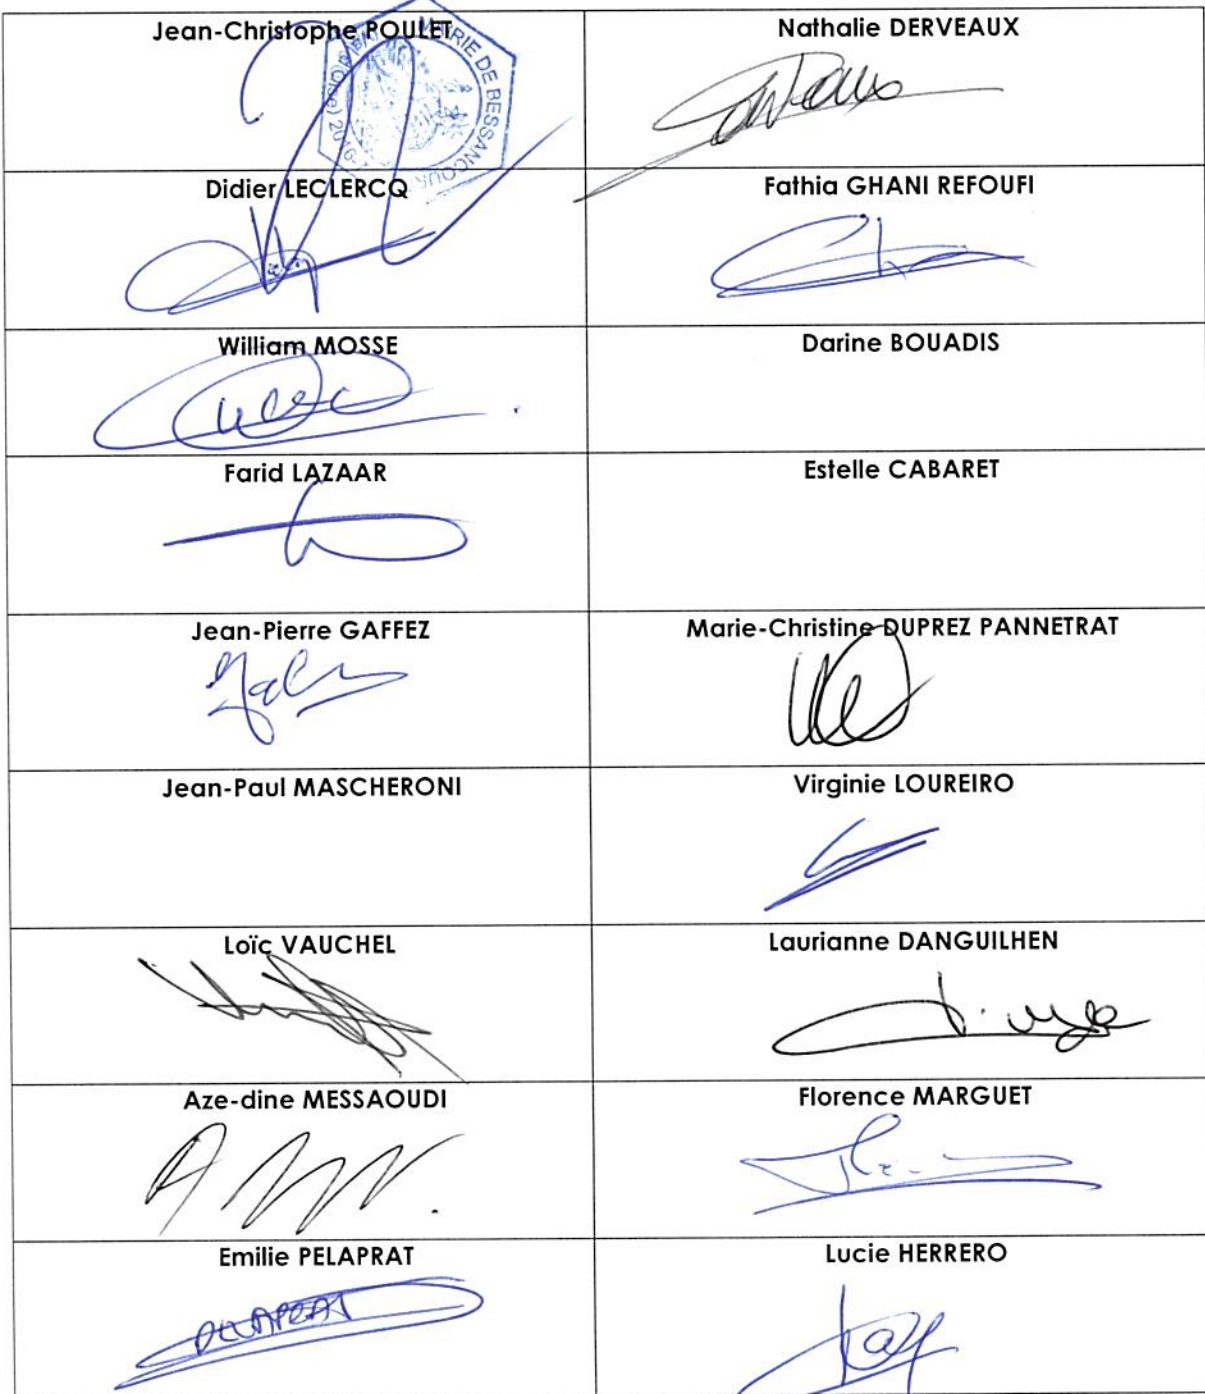 Jean-Christophe POULET
MAIRIE DE BESSANCOUR
Nathalie DERVEAUX
Didier LECLERCQ
Fathia GHANI REFOUFI
William MOSSE
Darine BOUADIS
Farid LAZAAR
Estelle CABARET
Jean-Pierre GAFFEZ
Marie-Christine DUPREZ PANNETRAT
Jean-Paul MASCHERONI
Virginie LOUREIRO
Loïc VAUCHEL
Laurianne DANGUILHEN
Aze-dine MESSAOUDI
Florence MARGUET
Emilie PELAPRAT
PELAPRAT
Lucie HERRERO